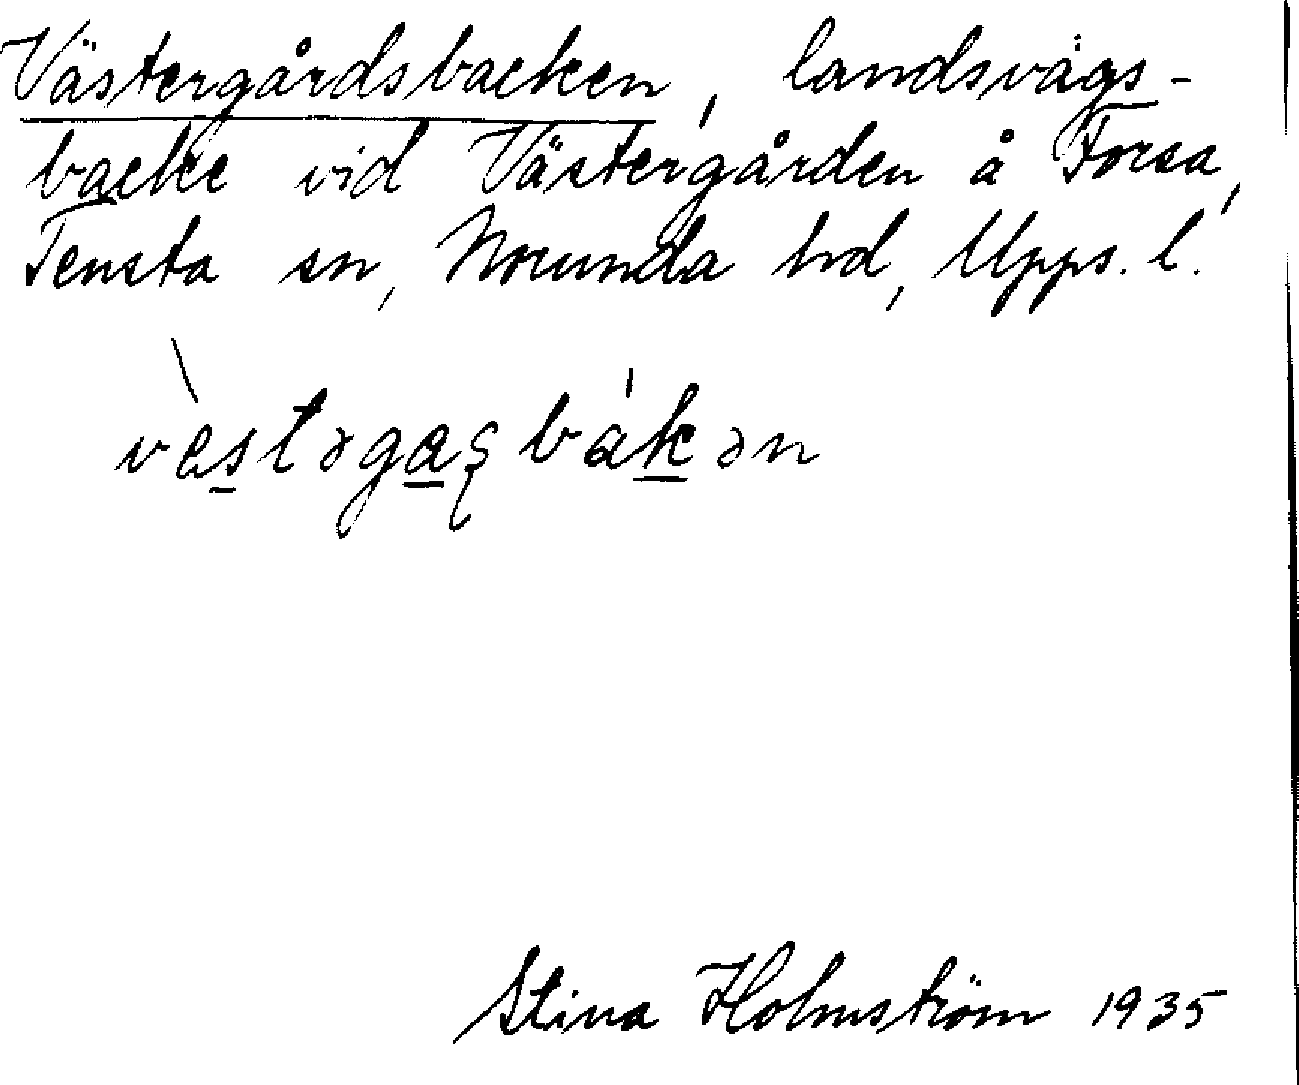 Västergårdsbacken, landsvägs-
backe vid Västergården å Forsa,
Tensta sn, Norunda hd, Upps. l.
vàstəgaʂbákən
Stina Holmström 1935